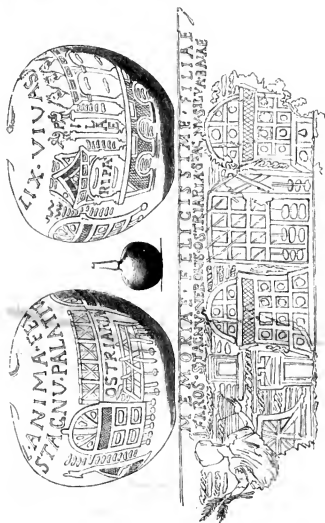 ANIMA·FE
STAGNV·PALATIV
OSTRIARIA
LIX·VIVAS
PILAE
RIPA
MEMORIAE·FELICISSIME·FILIAE
FAROS·STAGNV·NERONIS·OSTRIARIA·STAGNV·SILVA·BAIAE